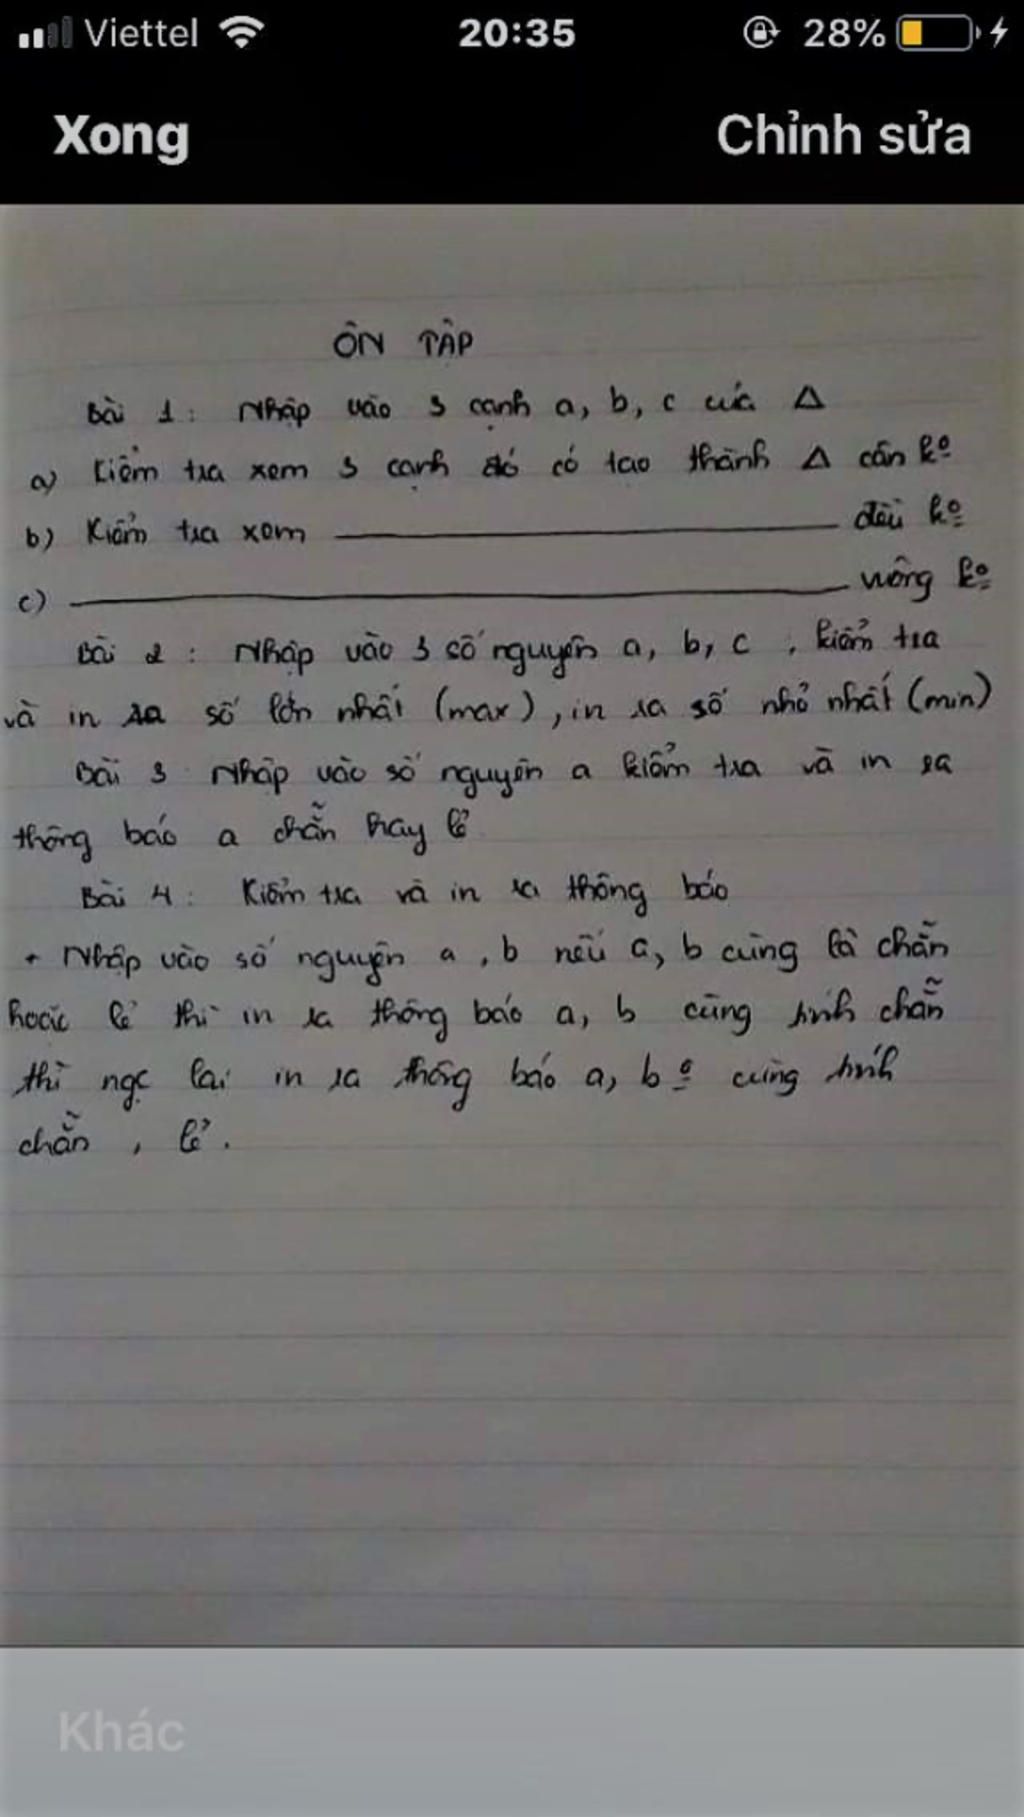 Viettel 20:35 28%
Xong Chỉnh sửa
ÔN TẬP
Bài 1: Nhập vào 3 cạnh a, b, c của Δ
a) Kiểm tra xem 3 cạnh đó có tạo thành Δ cân kº
b) Kiểm tra xem ____________ đều kº
c) ____________ vuông kº
Bài 2: Nhập vào 3 số nguyên a, b, c, kiểm tra
và in ra số lớn nhất (max), in ra số nhỏ nhất (min)
Bài 3 Nhập vào số nguyên a kiểm tra và in ra
thông báo a chẵn hay lẻ
Bài 4: Kiểm tra và in ra thông báo
+ Nhập vào số nguyên a, b nếu a, b cùng là chẵn
hoặc lẻ thì in ra thông báo a, b cùng tính chẵn
thì ngc lại in ra thông báo a, b º cùng tính
chẵn, lẻ.
Khác